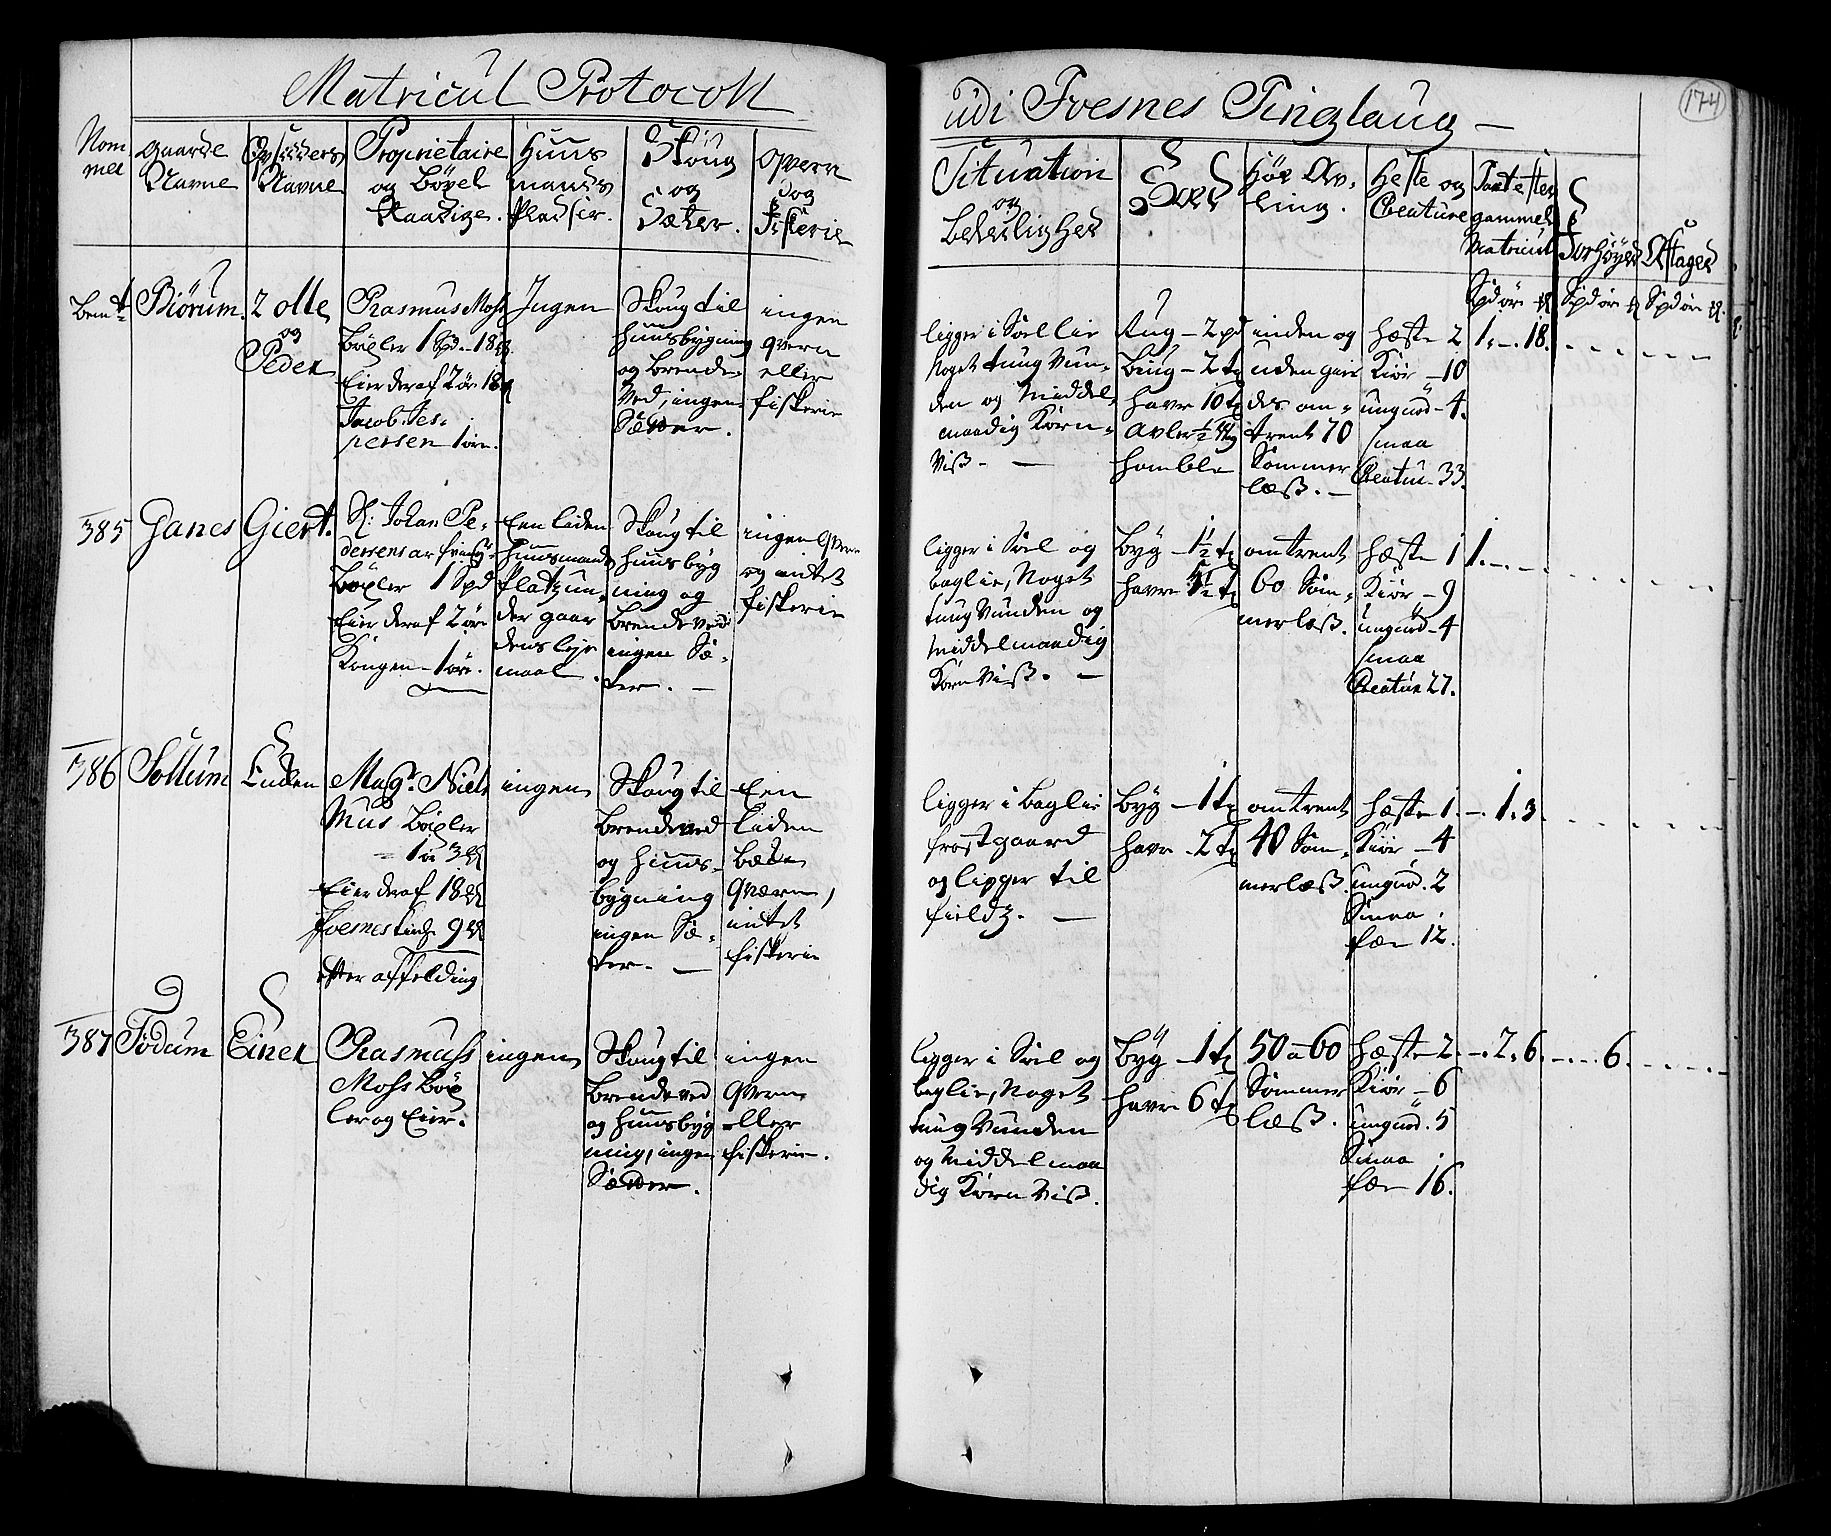 Matricul Protocoll
udi Foesnes Tinglaug
174
Nom
mer
Gaarde
Navne
Opsiders
Navne
Proprietairer
og Böxel
Raadige.
Huus
mands
Pladser.
Skoug
og
Sæter.
Qvern
og
Fiskerie
Situation
og
Beleilighed
Sæd
Höe Av-
ling.
Heste og
Creature
Taxt efter
gammel
Matricul
Forhöyed
Aftaged
Spd ör
Spd ör
Spd ör
Biörum.
2 Olle
og
Peder
Rasmus Moss
Böxler 1 Spd - 18
Eier deraf 2 ör 18
Jacob Jes-
persen 1 öre.
Ingen
Skoug til
Huusbygning
og Brende-
Ved, ingen
Sætter.
ingen
qvern
eller
fiskerie
ligger i Soellie
Noget tung Vun-
den og Middel
maadig Korn-
Viss -
Rug - 2 pd
Byg - 2 t
Havre 10 t
Avler 1/2
Homble
inden og
uden gier
des om-
trent 70
Sommer
læss. -
Hæste 2
Kiör - 10
ungnöd - 4.
smaa
Creatur - 33.
1. - . 18.
385
Ganes
Giert.
S: Johan Pe-
dersens
Böxler 1 Spd
Eier deraf 2 öre
Kongen - 1 öre.
Een liden
Huusmands
Platz un-
der gaar
dens leye
maal.
Skoug til
Huusbyg
ning og
Brendeved
ingen Sæ-
ter. -
ingen qvern
og intet
fiskerie
ligger i Soel og
Baglie, Noget
tung Vunden og
Middelmaadig
Korn Viss. -
Byg - 1 1/2 t
Havre 4 1/2 t
omtrent
60 Som-
merlæss.
Hæste 1
Kiör - 9
ungnöd - 4
smaa
Creatur 27.
1. - .
386
Sollum
Enden
Magr. Niels
Mus Böxler
- 1 ör 3
Eier deraf 18
Foesnes Kirke 9
efter affelding
ingen
Skoug til
Brendeved
og Huus-
bygning
ingen Sæ-
ter. -
Een
liden
Bæke
qværn,
intet
fiskerie
ligger i Baglie
frostgaard
og ligger til
fields. -
Byg - 1 t
Havre - 2 t
omtrent
40 Som-
merlæss.
Hæste 1.
Kiör - 4
ungnöd. 2
Smaa
fæe 12.
- . 1. 3.
387
Fodum
Einer
Rasmuss
Moss Böx
ler og Eier.
ingen
Skoug til
Brendeved
og Huusbyg
ning, ingen
Sætter.
ingen
qvern
eller
fiskerie.
ligger i Soel og
Baglie, Noget
tung Vunden
og Middelmaa
dig Korn Viss.
Byg - 1 t
Havre 6 t
50 a 60
Sommer
læss.
Hæste 2.
Kiör - 6
ungnöd. 5
Smaa
fæe 16.
- . 2. 6.
- . - . 6.